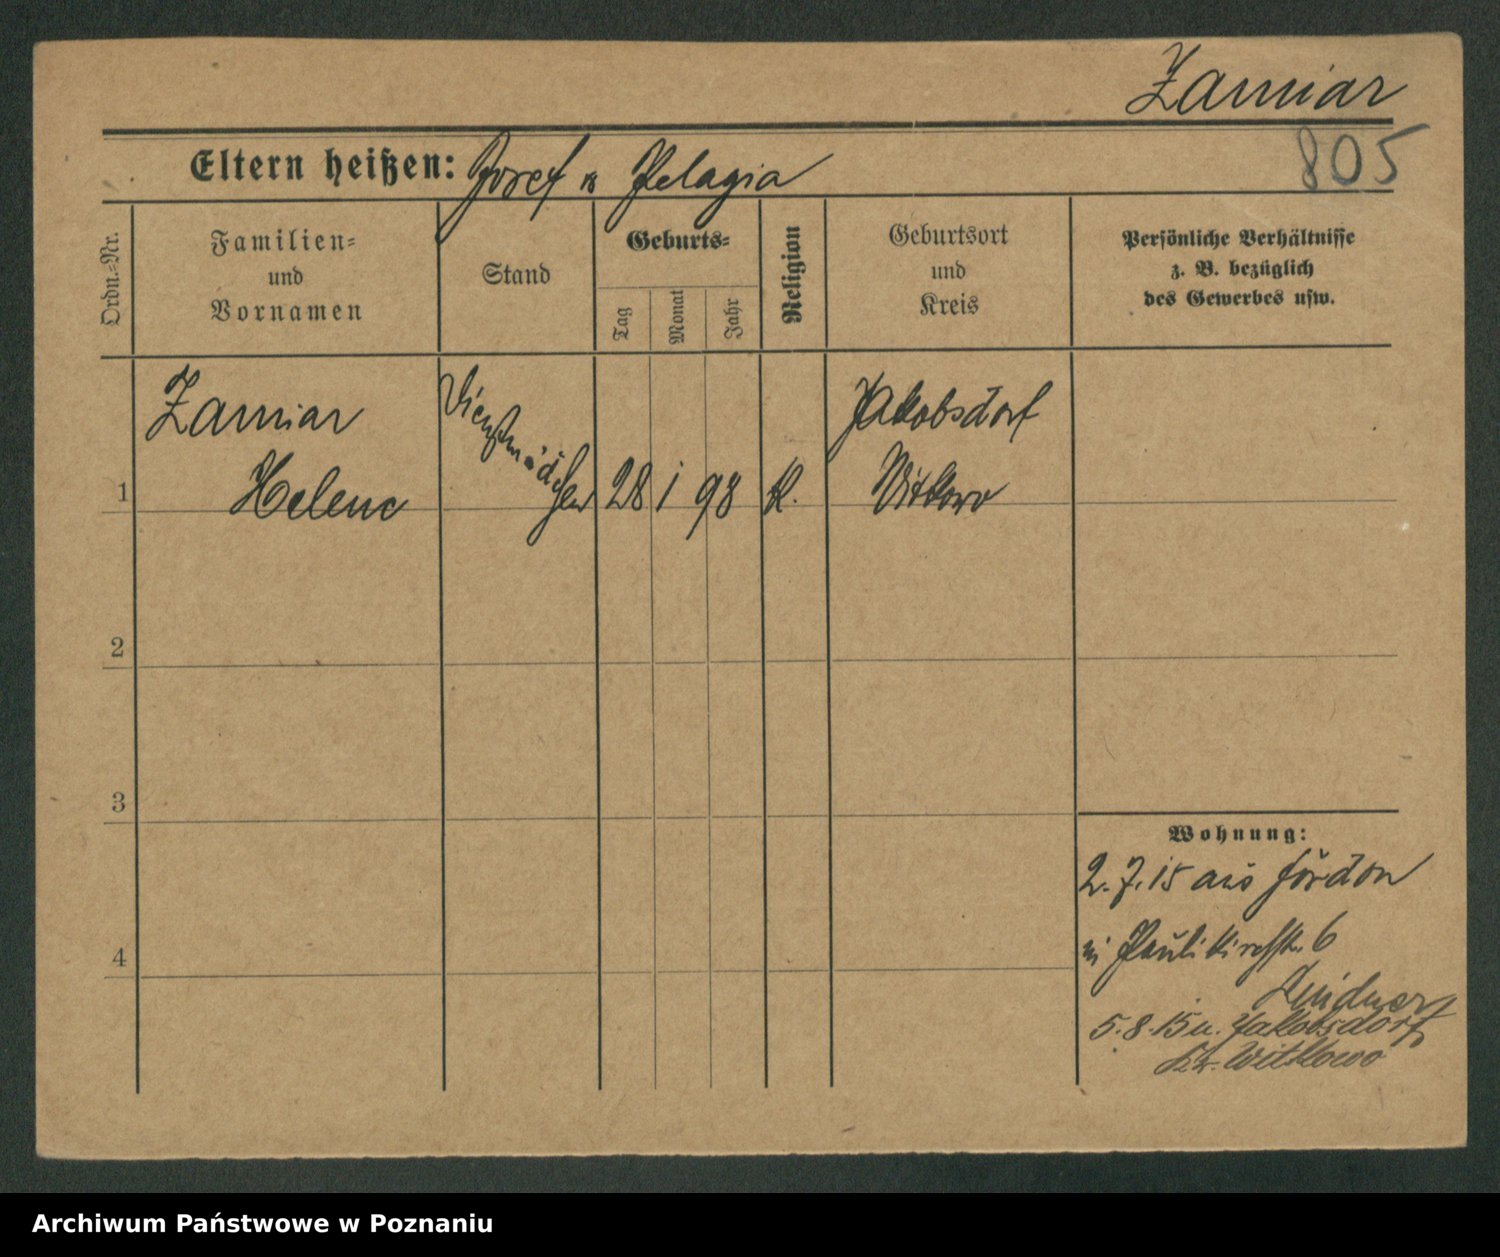 Zamiar
805
Eltern heißen: Josef u Pelagia
Ordn.-Nr.
Familien-
und
Vornamen
Stand
Geburts-
Tag
Monat
Jahr
Religion
Geburtsort
und
Kreis
Persönliche Verhältnisse
z. B. bezüglich
des Gewerbes usw.
1
Zamiar
Helene
Dienstmädchen
28
1
98
K.
Jakobsdorf
Witkowo
2
3
4
Wohnung:
2.7.15 aus Fordon
n Paulikirchstr. 6
Lindner
5.8.15 n. Jakobsdorf
Kr. Witkowo
Archiwum Państwowe w Poznaniu